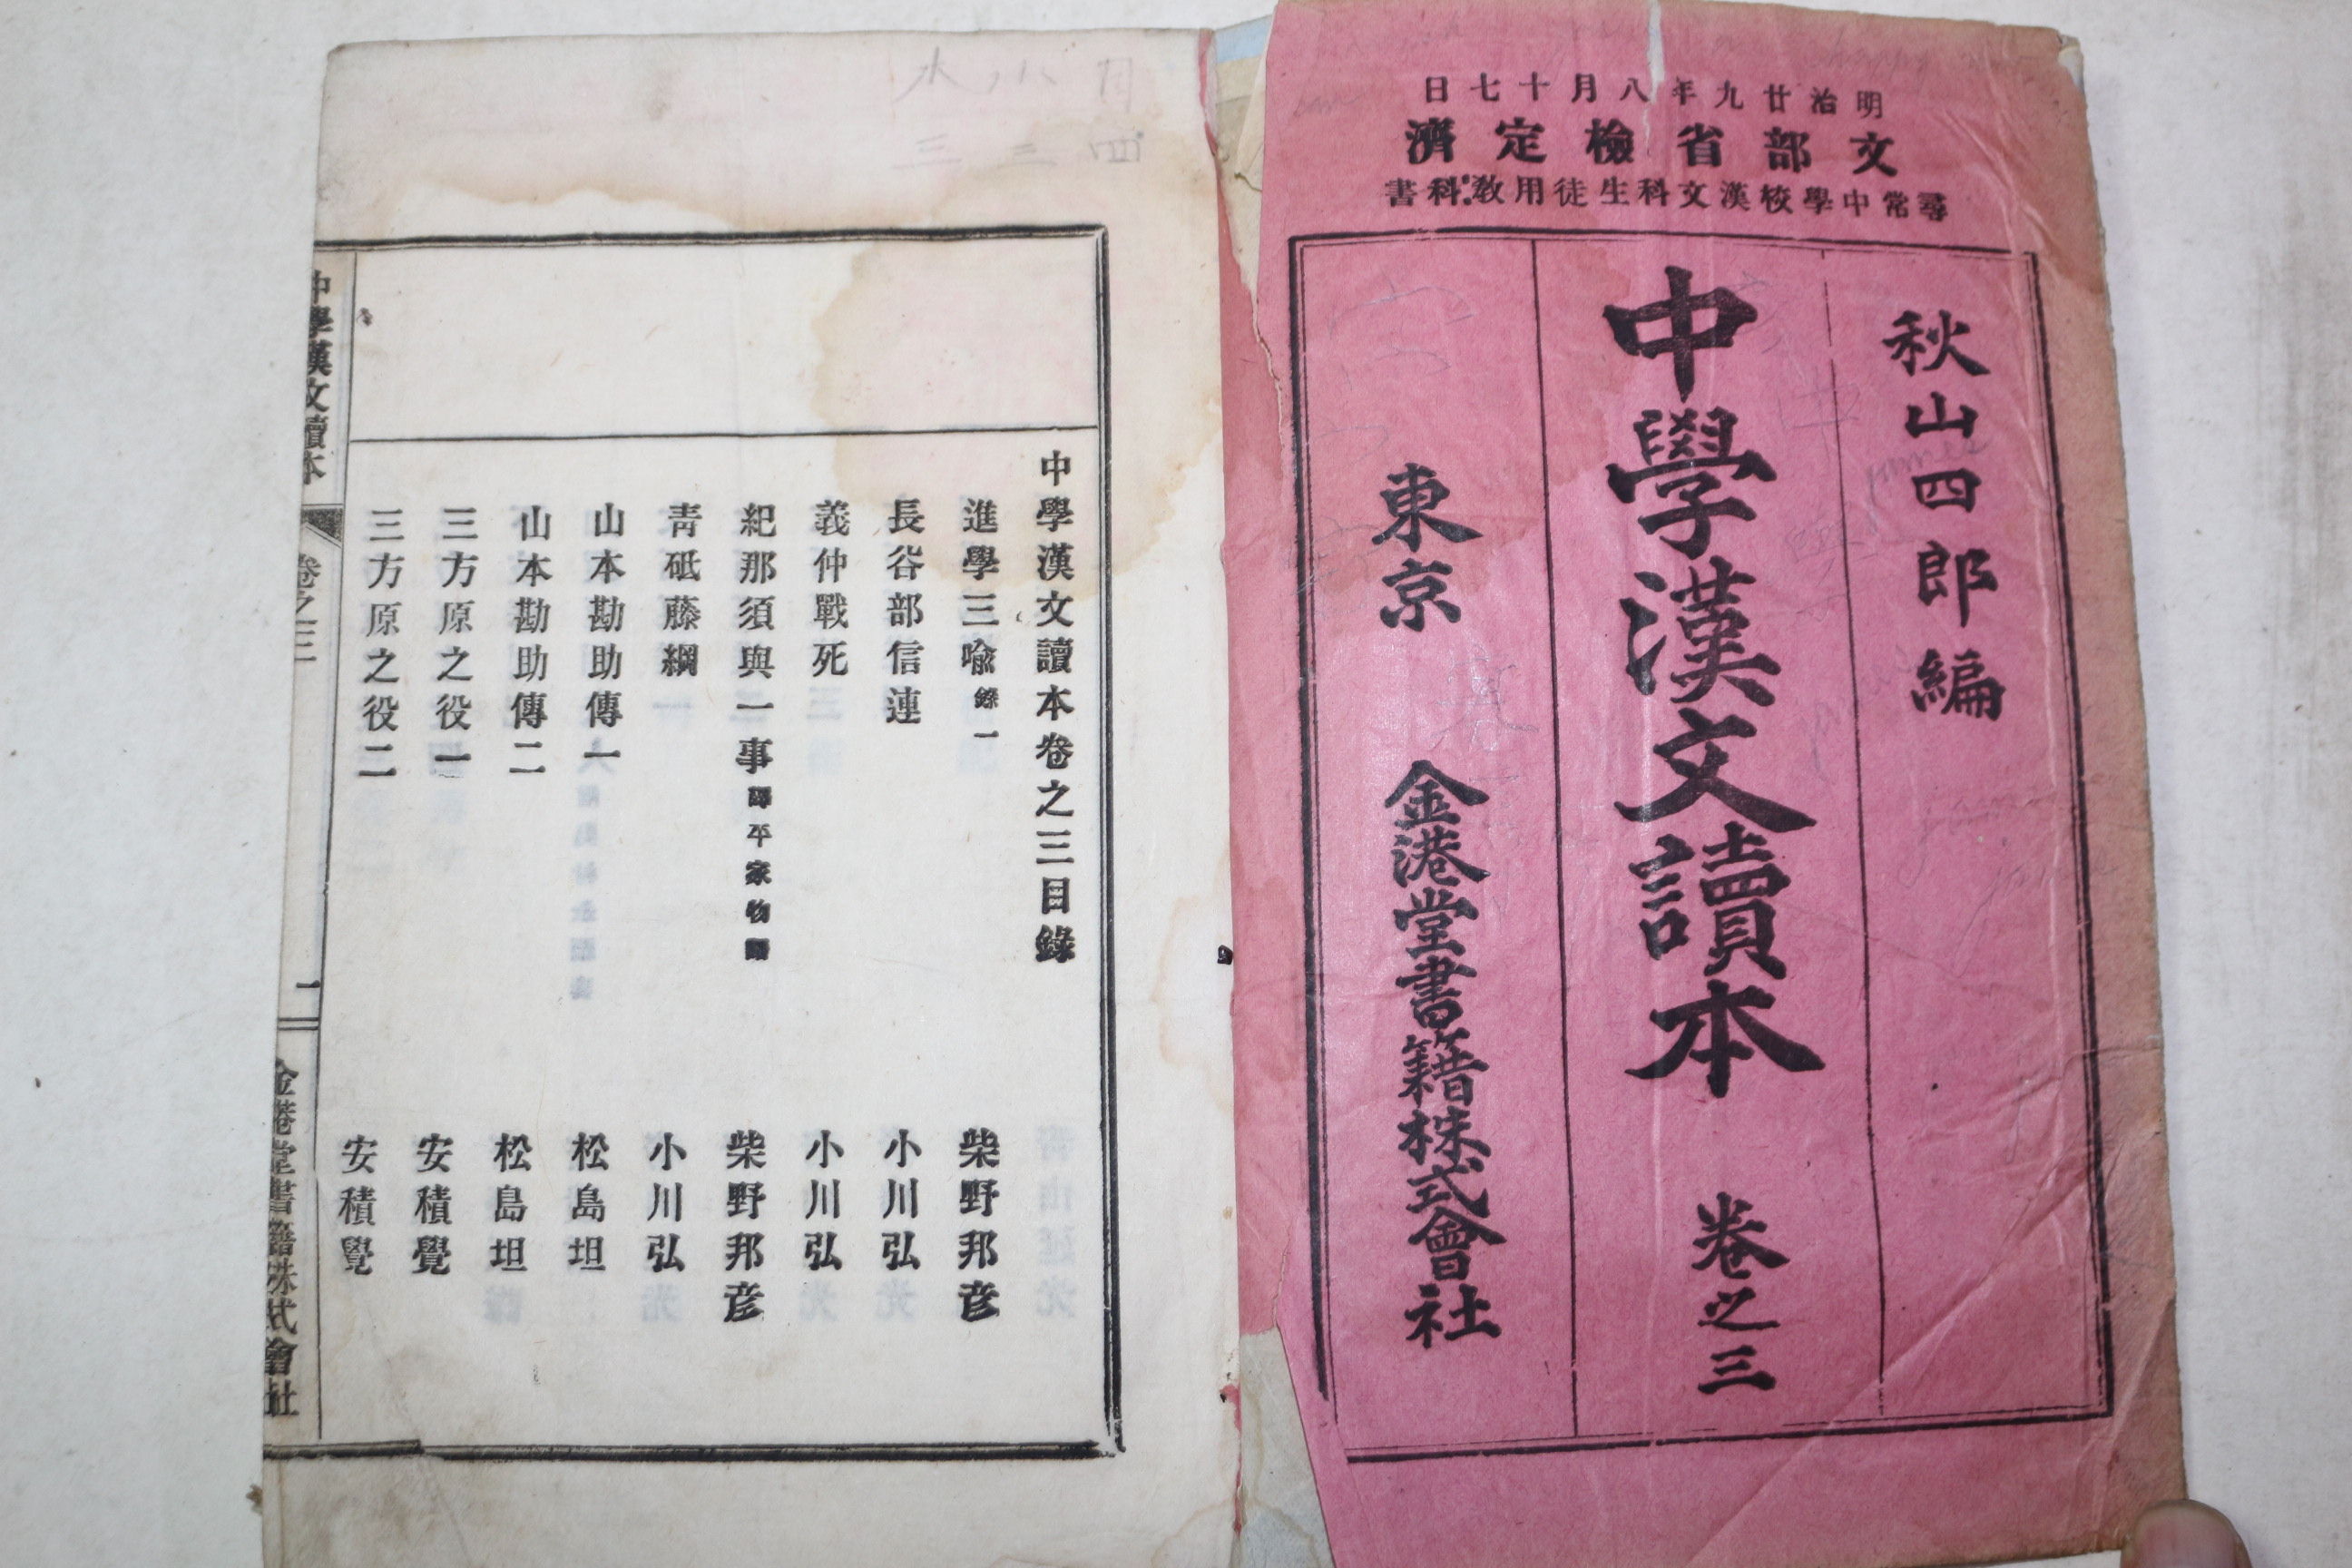 明治廿九年八月十七日
文部省檢定濟
尋常中學校漢文科生徒用教科書
秋山四郎編
中學漢文讀本 卷之三
東京 金港堂書籍株式會社
月 小 水
四 三 三
中學漢文讀本卷之三目錄
進學三喩 錄一 柴野邦彦
長谷部信連 小川弘
義仲戰死 小川弘
紀那須與一事 譯平家物語 柴野邦彦
靑砥藤綱 小川弘
山本勘助傳一 松島坦
山本勘助傳二 松島坦
三方原之役一 安積覺
三方原之役二 安積覺
中學漢文讀本 卷之三 一 金港堂書籍株式會社